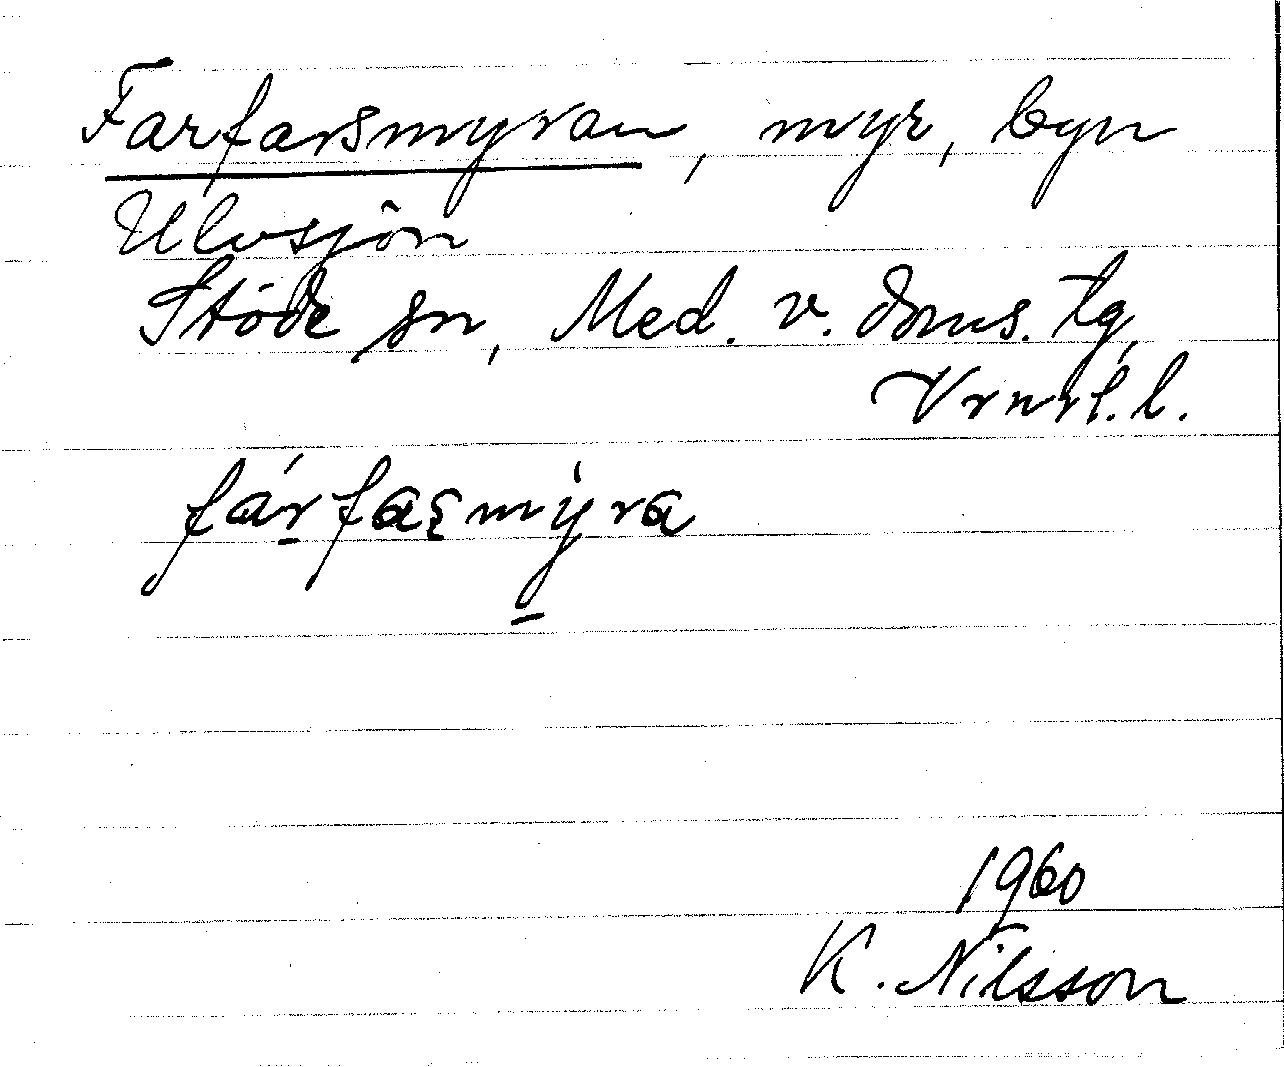 Farfarsmyran, myr, byn
Ulvsjön
Stöde sn, Med. v. doms. tg,
Vrnrl. l.
fárfaꞩmýra
1960
K. Nilsson